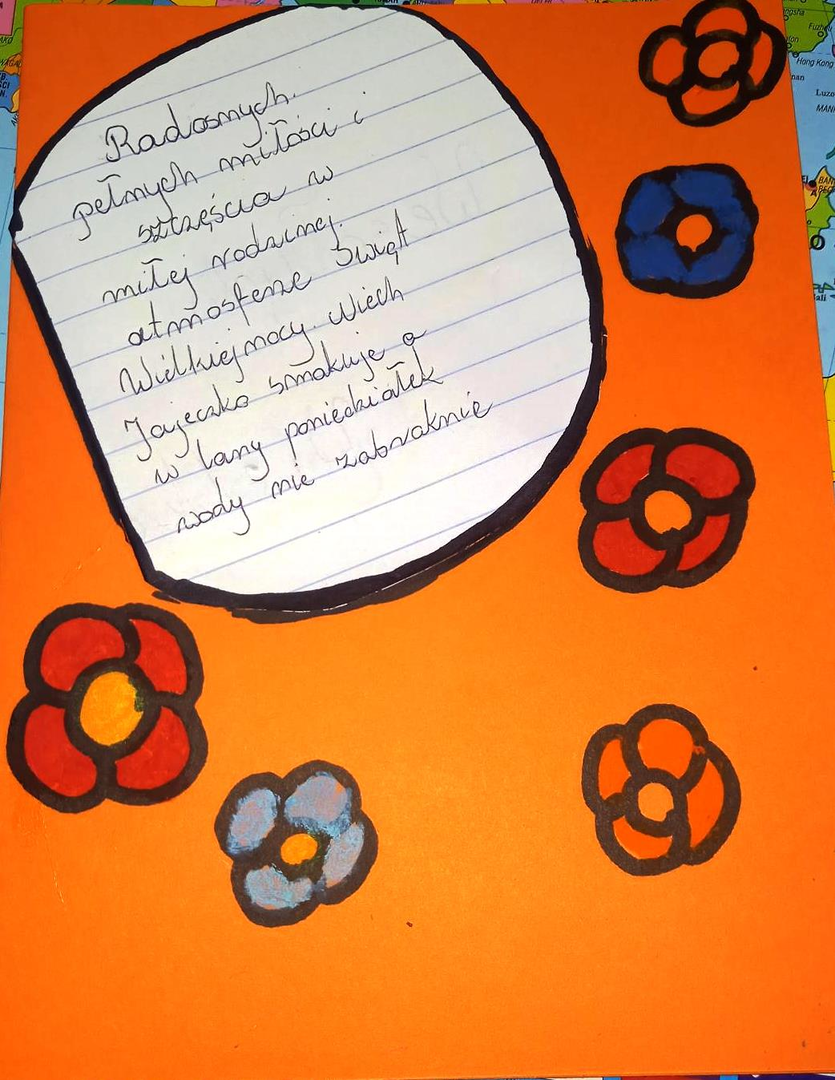 Radosnych.
pełnych miłości i
szczęścia w
miłej rodzinej
atmosferze Świąt
Wielkiejnocy. Niech
Jajeczko smakuje a
w lany poniedziałek
wody nie zabraknie
Fuzho
Hong Kong
Luzo